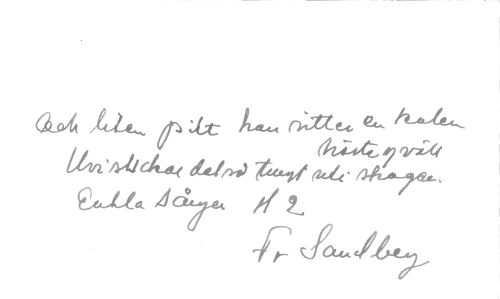 och liten pilt han sitter en kulen
höstqväll
Hvi suckar det så tungt uti skogen.
Enkla Sånger H 2
Fr Sandberg